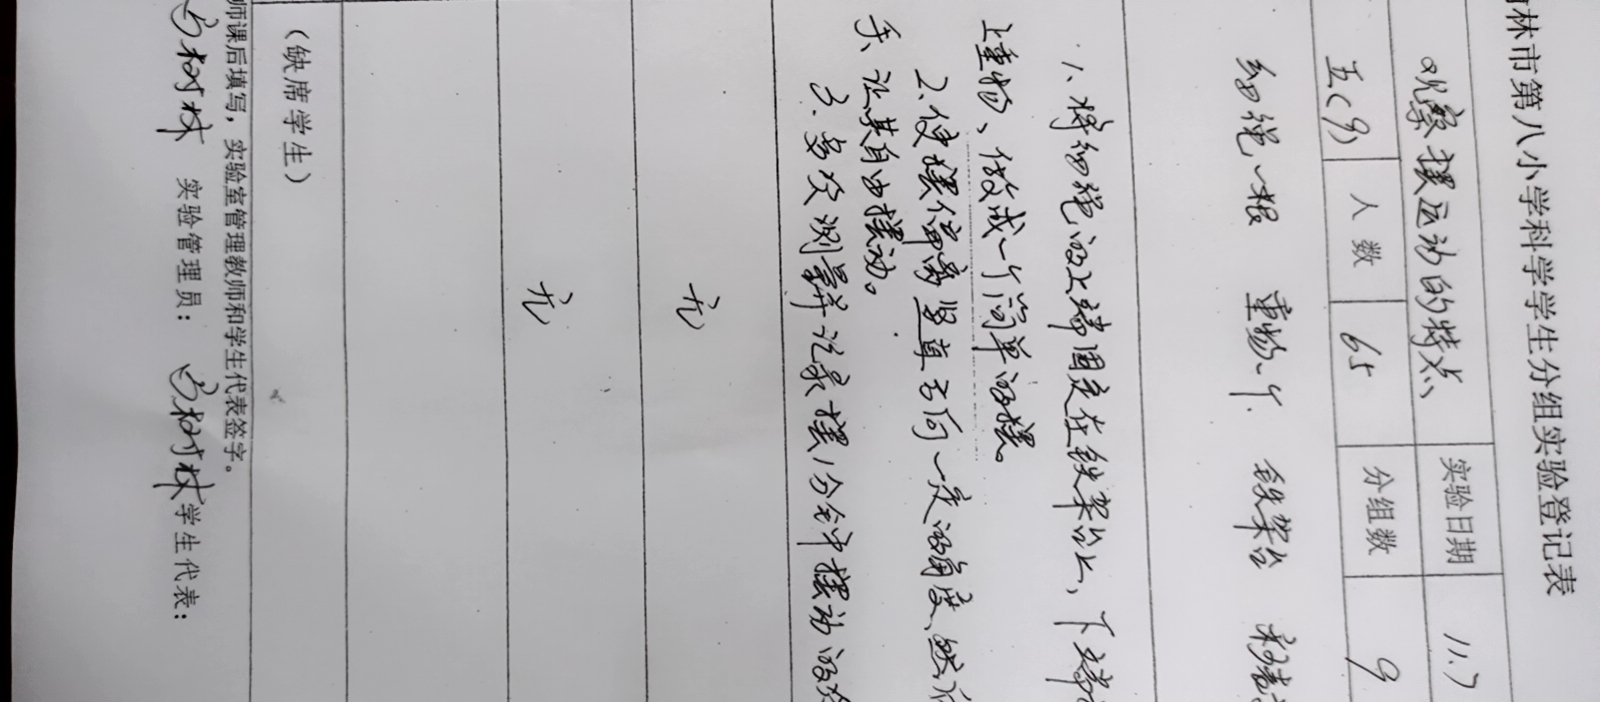 林市第八小学科学学生分组实验登记表
观察摆运动的特点 实验日期 11.7
五(9) 人数 65 分组数 9
细绳一根 重物一个 铁架台 秒表
1、将细绳的上端固定在铁架台上,下端
上重物、做成一个简单的摆。
2、使摆偏离竖直方向一定的角度、然后
手、让其自由摆动。
3、多次测量并记录摆1分钟中摆动的
无
无
(缺席学生)
师课后填写,实验室管理教师和学生代表签字。
树林 实验管理员: 树林 学生代表: